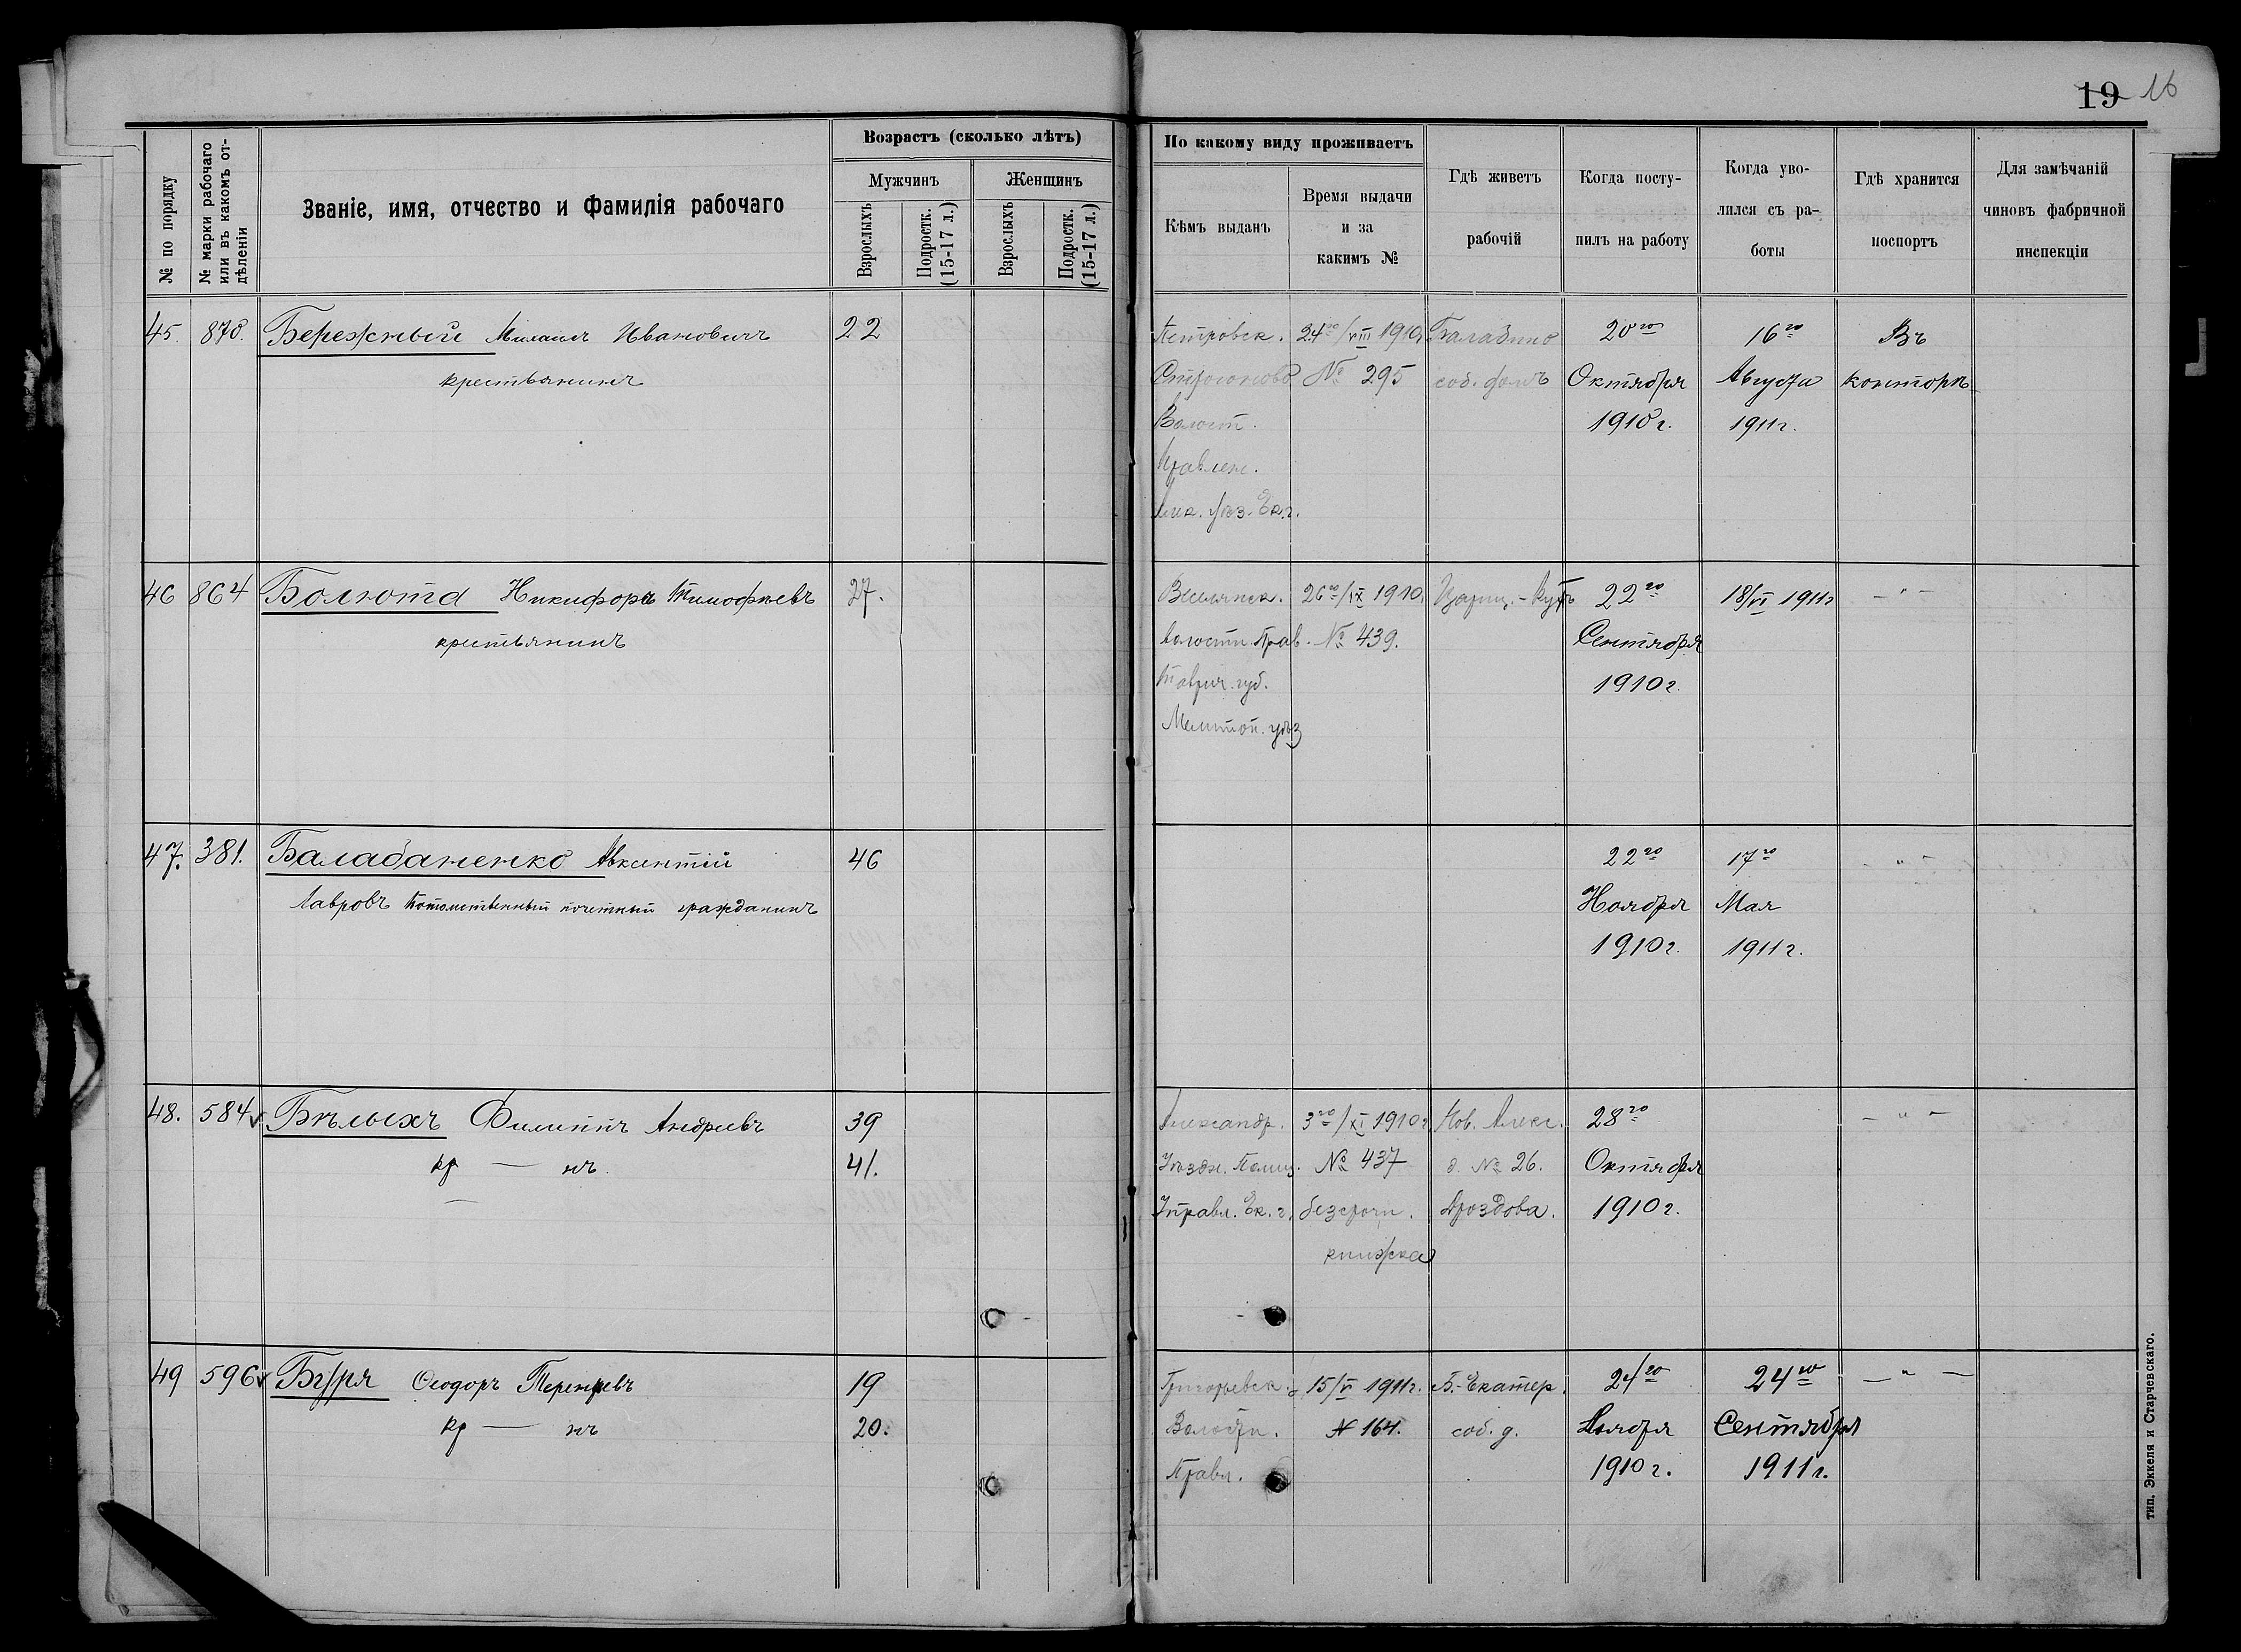 19 16
№ по порядку
№ марки рабочаго
или въ какомъ от-
дѣленіи
Званіе, имя, отчество и фамилія рабочаго
Возрастъ (сколько лѣтъ)
Мужчинъ
Женщинъ
Взрослыхъ
Подростк.
(15-17 л.)
Взрослыхъ
Подростк.
(15-17 л.)
По какому виду проживаетъ
Кѣмъ выданъ
Время выдачи
и за
какимъ №
Гдѣ живетъ
рабочій
Когда посту-
пилъ на работу
Когда уво-
лился съ ра-
боты
Гдѣ хранится
поспортъ
Для замѣчаній
чиновъ фабричной
инспекціи
45. 870. Бережный Михаилъ Ивановичъ 22
крестьянинъ
Петровск. 24го/VIII 1910 20го 16го Въ
№ 295 соб. домъ Октября Августа конторѣ
Волост. 1910 г. 1911 г.
Правлен.
Ек. г.
46 864 Болюта Никифоръ Тимофѣевъ 27.
крестьянинъ
26го/IX 1910. Цариц.-Кутъ 22го 18/VI 1911 г. - " -
волостн. Прав. № 439. Сентября
Таврич. губ. 1910 г.
Мелитоп. уѣз
47. 381. Балабаненко Авксентій 46
Лавровъ Потомственный почетный гражданинъ
22го 17го - " -
Ноября Мая
1910 г. 1911 г.
48. 584 Бѣлыхъ Филиппъ Андреевъ 39
кр — нъ. 41.
Александр. 3го/XI 1910 г. Нов. Алекс. 28го - " -
Уѣздн. Полиц. № 437 д. № 26. Октября
Управл. Ек. г. безсрочн. Дроздова. 1910 г.
книжка
49 596 Буря Ѳеодоръ Терентьевъ 19
кр — нъ 20.
Григорьевск. 15/V 1911 г. Б.-Екатер. 24го 24го - " -
Волостн. № 164. соб. д. Ноября Сентября
Правл. 1910 г. 1911 г.
тип. Эккеля и Старчевскаго.